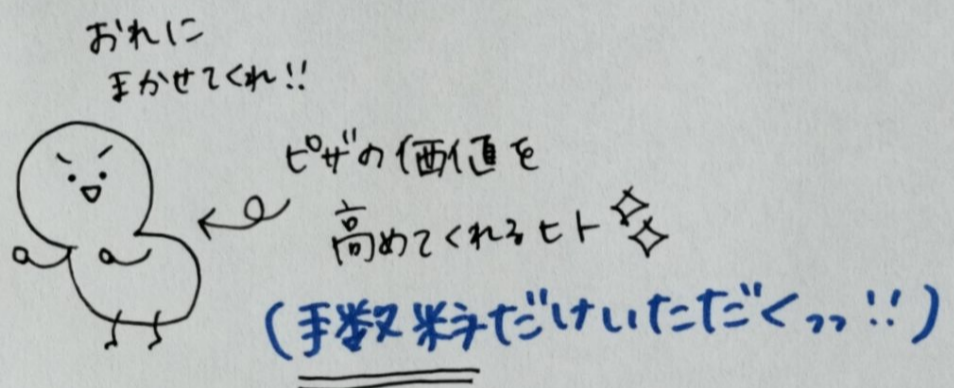 おれに
まかせてくれ!!
ピザの価値を
高めてくれるヒト
(手数料だけいただくっっ!!)